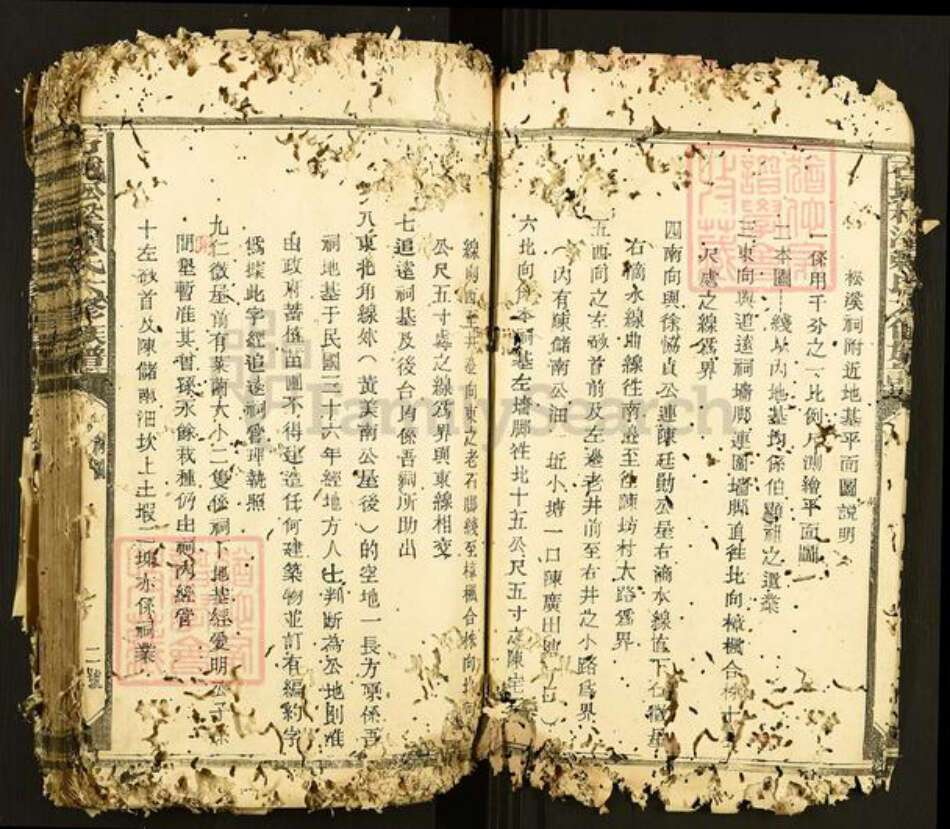 松溪祠附近地基平面圖説明
一係用千分之一比例尺測繪平面圖
二本圖一綫以內地基均係伯顯祖之遺業
三東向與追遠祠墻脚連圍墻脚直往北向樟楓合株十
尺處之線爲界
四南向與徐協貞公連陳廷勛公屋右滴水線
右滴水線曲線往南邊至往陳坊村大路爲界
五西向之左畝首前及左邊老井前至右井之小路爲界
(內有陳儲南公田 坵小塘一口陳廣田
六北向 本祠基左墻脚往北十五公尺五寸 陳宅
線向西 向東之老石脚綫至樟楓合株向北
公尺五寸處之線爲界與東線相交
七追遠祠基及後台均係吾祠所助出
八東北角線外(黃美南公屋後)的空地一長方形係吾
祠地基于民國三十六年經地方人士判斷為公地則准
由政府蓄植苗圃不得建造任何建築物並訂有編約字
爲據此字經追遠祠管理執照
九仁徵屋前有菜園大小二隻係祠下地基經愛明公子孫
開墾暫准其曾孫永餘栽種仍由祠內經管
十左畝首及陳儲南田坎上土塅二塊亦係祠業
二號
FamilySearch